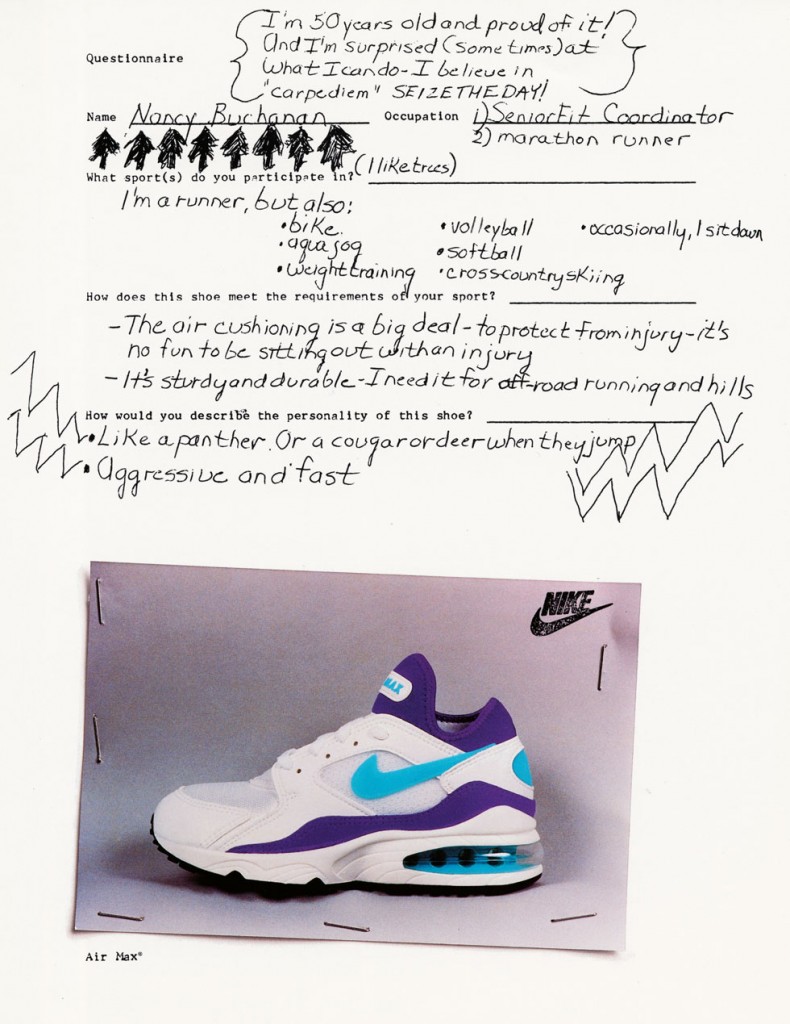 I'm 50 years old and proud of it!
And I'm surprised (sometimes) at
what I can do - I believe in
"carpediem" SEIZE THE DAY!
Questionnaire
Name Nancy Buchanan Occupation 1) SeniorFit Coordinator
2) marathon runner
(I like trees)
What sport(s) do you participate in?
I'm a runner, but also:
• bike • volleyball • occasionally, I sit down
• aqua jog • softball
• weight training • cross country skiing
How does this shoe meet the requirements of your sport?
- The air cushioning is a big deal - to protect from injury - it's
no fun to be sitting out with an injury
- It's sturdy and durable - I need it for off-road running and hills
How would you describe the personality of this shoe?
• Like a panther. Or a cougar or deer when they jump
• Aggressive and fast
NIKE
MAX
Air Max®